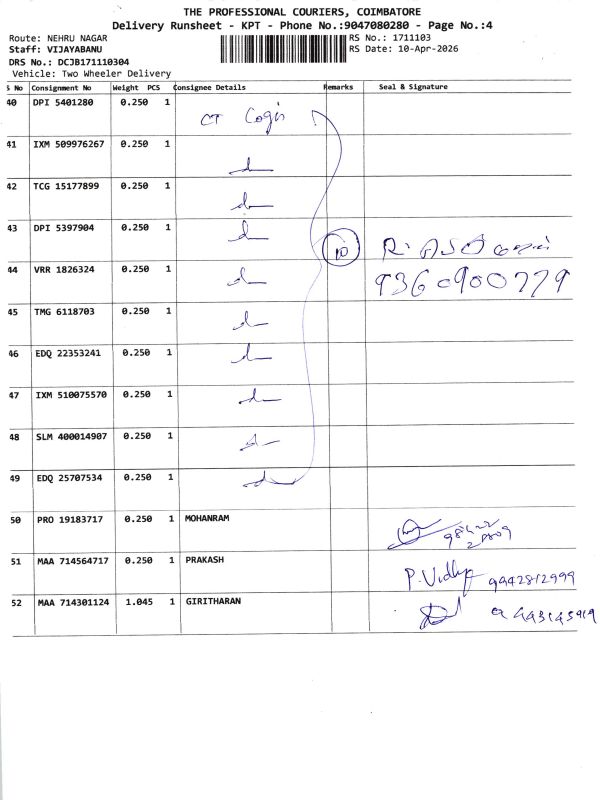 THE PROFESSIONAL COURIERS, COIMBATORE
Delivery Runsheet - KPT - Phone No.:9047080280 - Page No.:4
Route: NEHRU NAGAR RS No.: 1711103
Staff: VIJAYABANU RS Date: 10-Apr-2026
DRS No.: DCJB171110304
Vehicle: Two Wheeler Delivery
S No Consignment No Weight PCS Consignee Details Remarks Seal & Signature
40 DPI 5401280 0.250 1 CT
41 IXM 509976267 0.250 1
42 TCG 15177899 0.250 1
43 DPI 5397904 0.250 1
10
44 VRR 1826324 0.250 1 9360900779
45 TMG 6118703 0.250 1
46 EDQ 22353241 0.250 1
47 IXM 510075570 0.250 1
48 SLM 400014907 0.250 1
49 EDQ 25707534 0.250 1
50 PRO 19183717 0.250 1 MOHANRAM
51 MAA 714564717 0.250 1 PRAKASH P. Vidhya 9942812999
52 MAA 714301124 1.045 1 GIRITHARAN